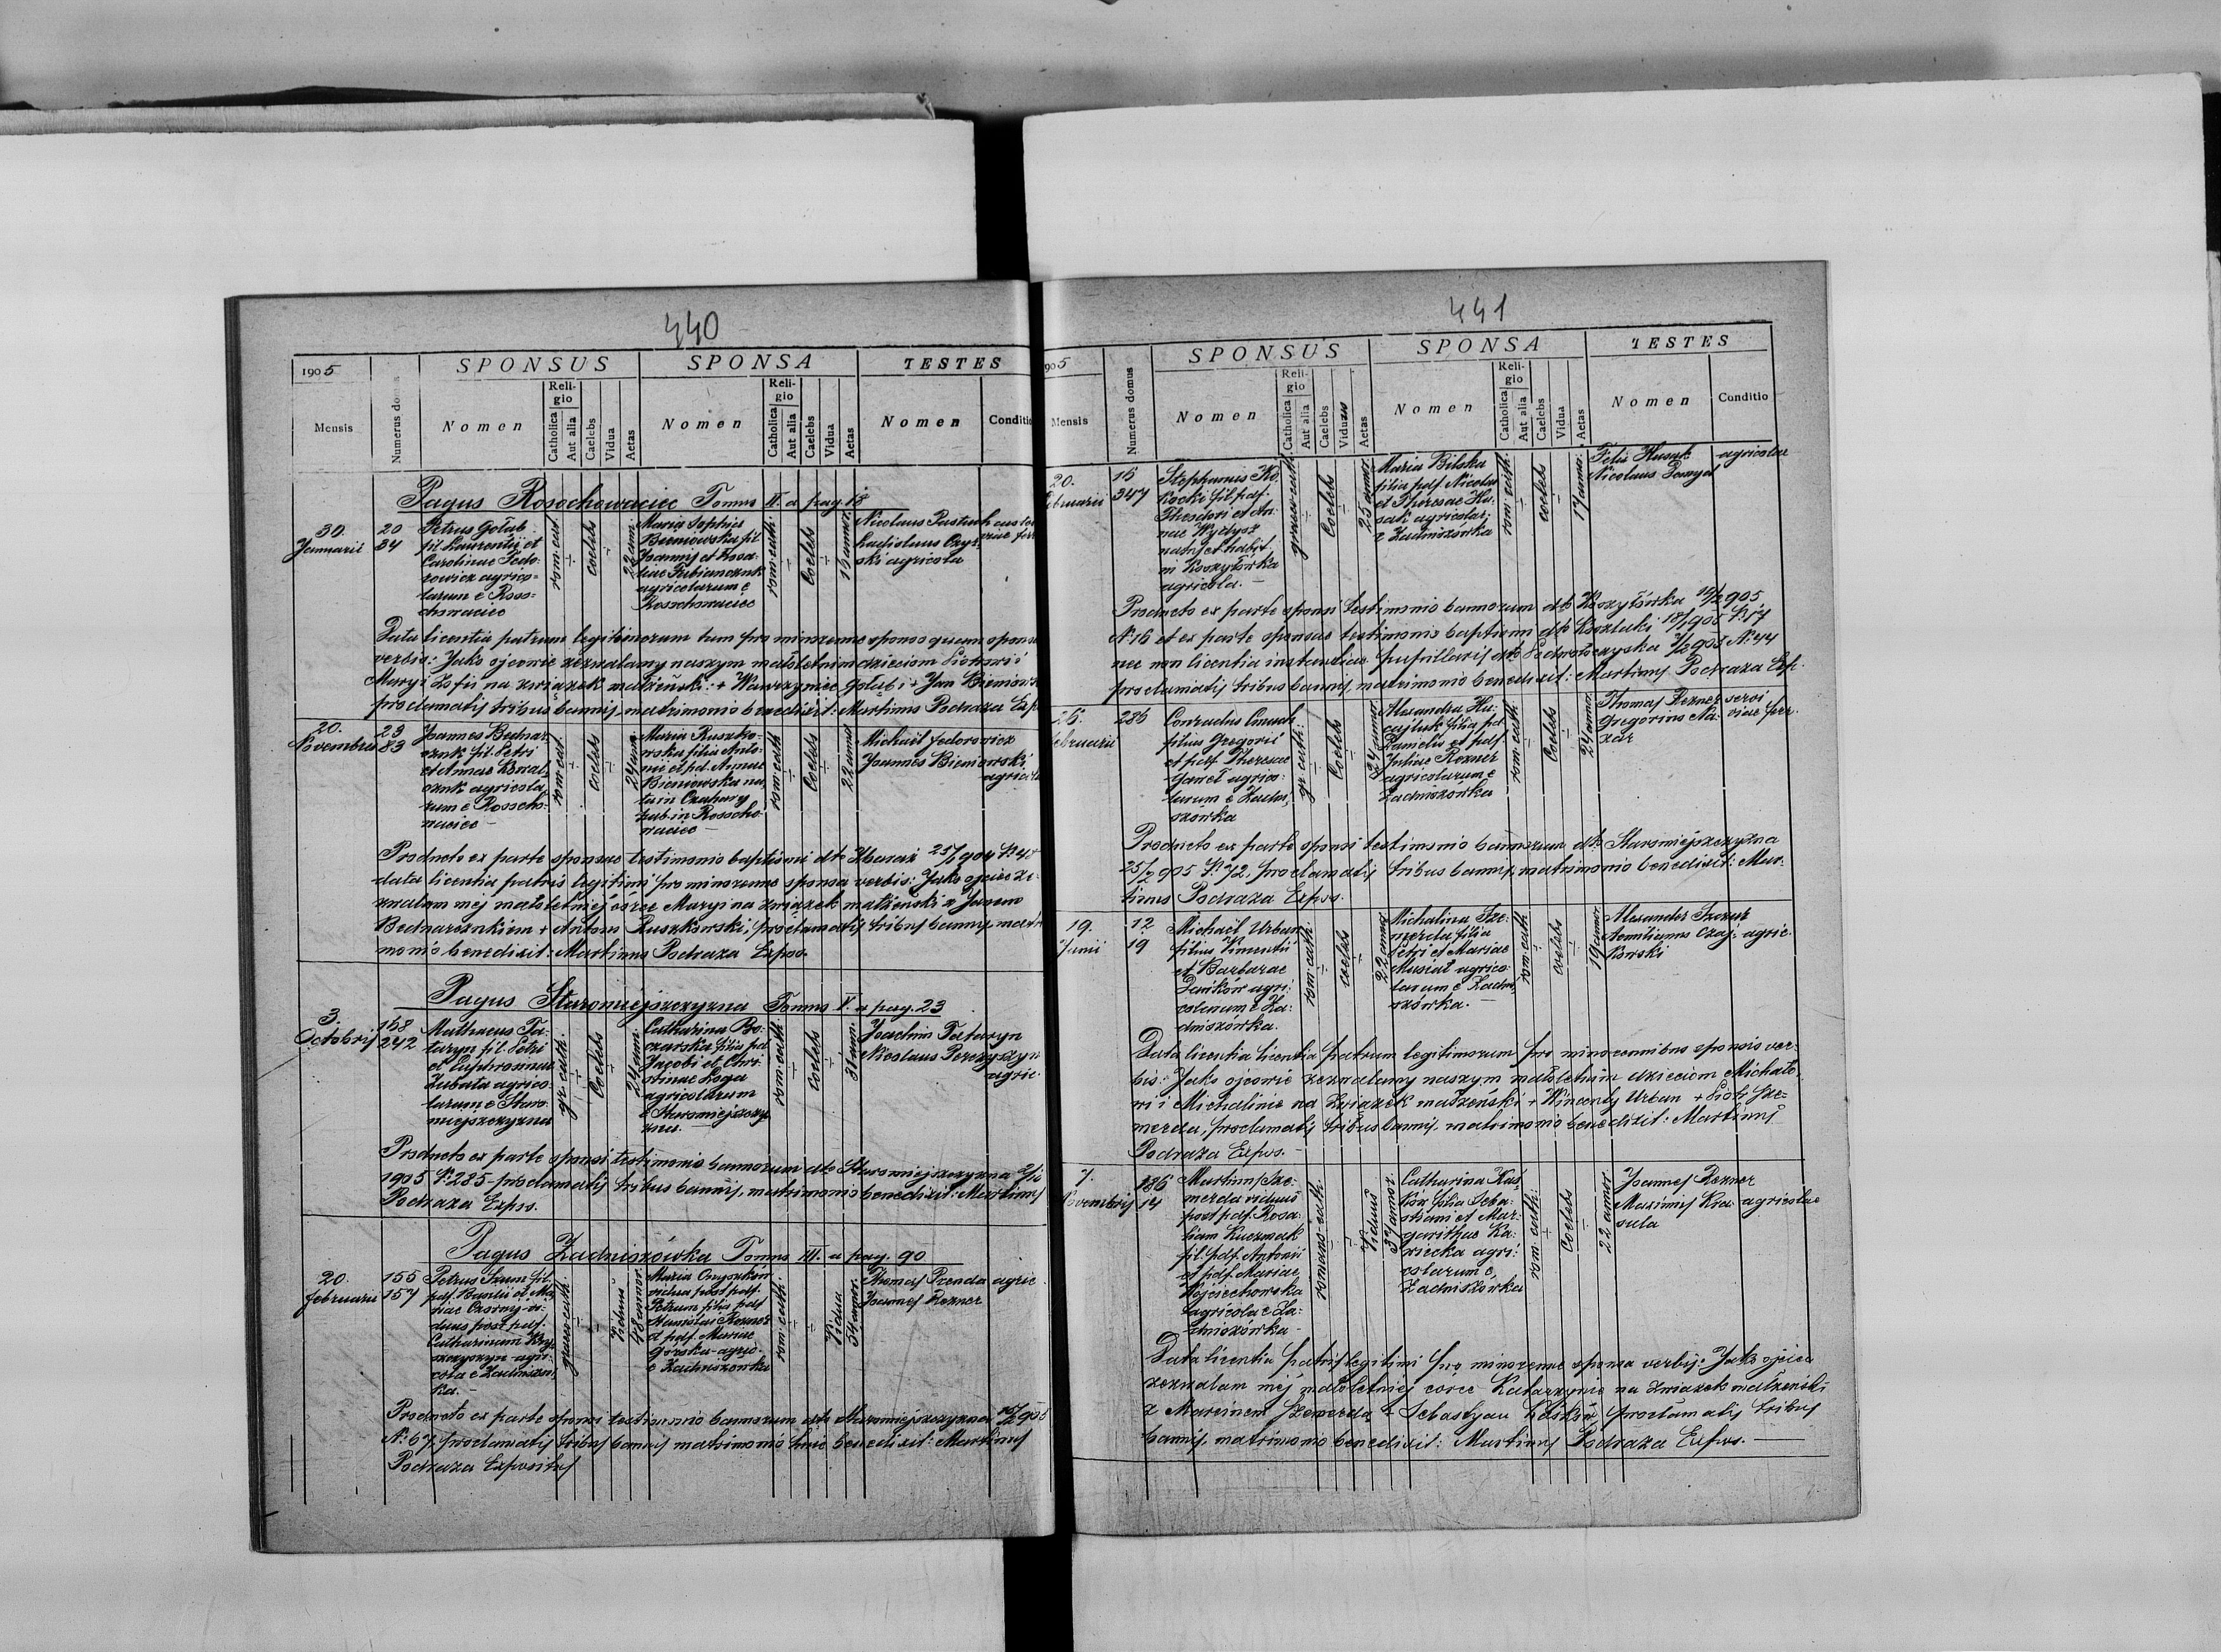 440
1905
SPONSUS
SPONSA
TESTES
Mensis
Numerus
Nomen
Religio
Catholica
Aut alia
Caelebs
Vidua
Aetas
Nomen
Religio
Catholica
Aut alia
Caelebs
Vidua
Aetas
Nomen
Conditio
Pagus Rosochowaciec Tomus II. a pag. 18
30.
Januarii
20
34
Petrus Gołab
fil. Laurentii et
Carolinae Fedo-
rowicz agrico-
larum e Roso-
chowaciec
rom. cath.
coelebs
22 ann.
Maria Sophia
Bieniowska fil
Joannis et Rosa-
liae
agricolarum e
Rosochowaciec
rom. cath.
Coelebs
16 annor.
Nicolaus Pastuch
ski agricola
Data licentia patrum legitimorum tum pro minorenne sponso quam sponsa
verbis: Jako ojcowie zezwalamy naszym małoletnim dzieciom Piotrowi i
Maryi Zofii na związek małżeński: + Wawrzyniec Gołąb i + Jan
proclamatis tribus bannis, matrimonio benedixit: Martinus Podraza Exp
20.
Novembris
23
83
Joannes Bednar-
czuk fil. Petri
et Annae Kowal-
czuk agricola-
rum e Rosocho-
waciec
rom. cat.
Coelebs
24 ann.
Maria Ruszko-
wska filia Anto-
nii et pd. Annae
Bieniowska na-
ta in Czahary
hab. in Rosocho-
waciec
rom. cath
Coelebs
22 annor
Michaël Fedorowicz
Joannes Bieniowski
agricolae
Producto ex parte sponsae testimonio baptismi dto Zbaraż 904
data licentia patris legitimi pro minorenne sponsa verbis: Jako ojciec ze-
zwalam mej małoletniej córce Maryi na związek małżeński z Janem
Bednarczukiem + Antoni Ruszkowski, proclamatis tribus bannis matri-
monio benedixit: Martinus Podraza Expos.
Pagus Staromiejszczyzna Tomus V. a pag. 23
3.
Octobris
168
242
Mathaeus Ta-
taryn fil. Petri
et Euphrosinae
Zubata agrico-
larum e Staro-
miejszczyzna
gr. cath.
Coelebs
24 ann.
Catharina Bo-
czarska filia pd.
Jacobi et Chri-
stinae Łoza
agricolarum
e Staromiejszczy-
zna.
rom. cath.
Coelebs
31 ann.
Joachim Tataryn
Nicolaus
agric.
Producto ex parte sponsi testimonio bannorum dto Staromiejszczyzna
1905 N. 285 - proclamatis tribus bannis, matrimonio benedixit: Martinus
Podraza Expos.
Pagus Zadniszówka Tomus III. a pag. 90
20.
februarii
155
157
Petrus Szum fil.
pdf. Basilii et Ma-
riae Czorny vi-
duus post pdf.
Catharinam
agri-
cola e Zadniszów-
ka.
graeco cath
Viduus
48 annor.
Maria Onyszków
vidua post pdf.
Petrum filia pdf
Stanislai Rozner
et pdf. Mariae
Gorska - agric.
e Zadniszówka
rom. cath.
Vidua
54 annor.
Thomas Prenda agric.
Joannes Rozner
Producto ex parte sponsi testimonio bannorum dto Staromiejszczyzna
N. 67, proclamatis tribus bannis matrimonio huic benedixit: Martinus
Podraza Expositus
441
905
SPONSUS
SPONSA
TESTES
Mensis
Numerus domus
Nomen
Religio
Catholica
Aut alia
Caelebs
Viduus
Aetas
Nomen
Religio
Catholica
Aut alia
Caelebs
Vidua
Aetas
Nomen
Conditio
20.
februarii
16
347
Stephanus Ko-
kocki fil. pdf.
Theodori et An-
nae
natus et habit.
in Koszyłówka
agricola.
graeco cath.
Coelebs
25 annor.
Maria Bilska
filia pdf. Nicolai
et Theresae Hu-
sak agricolar.
z Zadniszówka
rom. cath.
coelebs
17 annor.
Felix Husak
Nicolaus
agricolae
Producto ex parte sponsi testimonio bannorum dto Koszyłówka 19/2 905
N. 16 et ex parte sponsae testimonio baptismi dto Kaczłuki N. 17
nec non licentia instantiae pupillaris dto Podwołoczyska N. 44
proclamatis tribus bannis, matrimonio benedixit: Martinus Podraza Exp.
26.
februarii
286
Conradus
filius Gregorii
et pdf Theresae
Gaweł agrico-
larum e Zadni-
szówka
gr. cath.
Coelebs
24 annor.
Alexandra Hu-
filia pd.
et pdf.
Juliae Rozner
agricolarum e
Zadniszówka
rom. cath
Coelebs
24 annor.
Thomas Rozner
Gregorius Na-
zar
servi
viae ferr.
Producto ex parte sponsi testimonio bannorum dto Staromiejszczyzna
25/2 905 N. 72. proclamatis tribus bannis, matrimonio benedixit: Mar-
tinus Podraza Expos.
19.
Junii
12
19
Michaël Urban
filius Vincentii
et Barbarae
agri-
colarum e Za-
dniszówka.
rom. cath.
coelebs
22 annor.
Michalina Sze-
merda filia
Petri et Mariae
Musiał agrico-
larum e Zadni-
szówka.
rom. cath.
coelebs
19 annor.
Alexander
Aemilianus Czaj-
kowski
agric.
Data licentia licentia patrum legitimorum pro minorennibus sponsis ver-
bis: Jako ojcowie zezwalamy naszym małoletnim dzieciom Michało-
wi i Michalinie na związek małżeński + Wincenty Urban + Piotr Sze-
merda, proclamatis tribus bannis, matrimonio benedixit: Martinus
Podraza Expos.
7.
Novembris
186
14
Martinus Sze-
merda viduus
post pdf. Rosa-
liam Kuczmak
fil. pdf. Antonii
et pdf. Mariae
Wojciechowska
agricola e Za-
dniszówka
romano-cath.
Viduus
34 annor.
Catharina Kaś-
ków filia Seba-
stiani et Mar-
garithae Ka-
wiecka agri-
colarum e
Zadniszówka
rom. cath.
Coelebs
22 annor.
Joannes Rozner
Maximus Kra-
sula
agricolae
Data licentia patris legitimi pro minorenne sponsa verbis: Jako ojciec
zezwalam mej małoletniej córce Katarzynie na związek małżeński
z Marcinem Szemerdą + Sebastyan Kaśków proclamatis tribus
bannis, matrimonio benedixit: Martinus Podraza Expos.